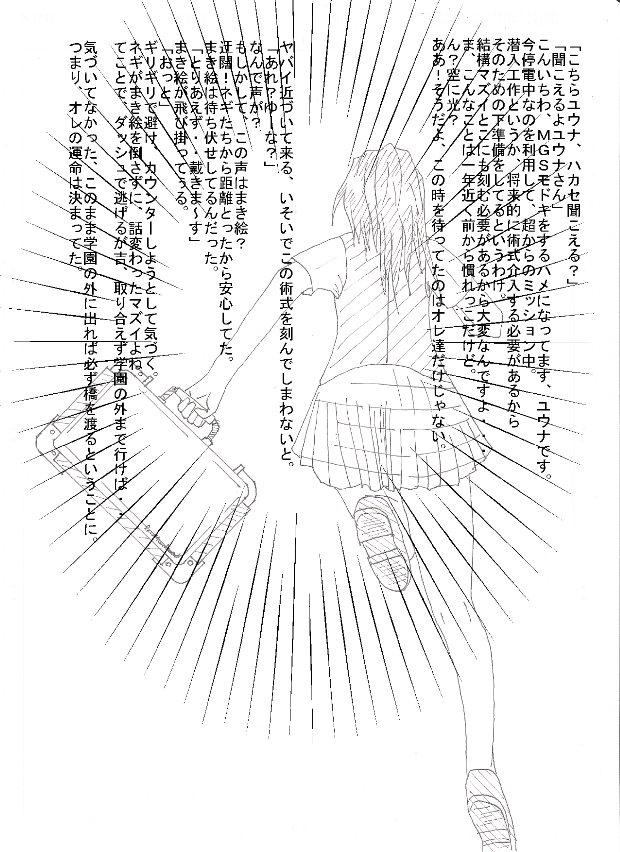 「こちらユウナ、ハカセ聞こえる？」
「聞こえるよユウナさん」
こんいちわ、ＭＧＳモドキをするハメになってます、ユウナです。
今停電中なのを利用して、超からのミッション中。
潜入工作というか、将来的に術式介入する必要があるから
そのための下準備をしてるというわけ。
結構マズイとこにも刻む必要があるから大変なんですよ・・
ま、こんなことは一年近く前から慣れっこだけど。
ん？空に光？
ああ！そうだよ、この時を待ってたのはオレ達だけじゃない。
ヤバイ近づいて来る、いそいでこの術式を刻んでしまわないと。
「あれ？ゆーな？」
なんで声が？
もしかして、この声はまき絵？
迂闊！ネギたちから距離とったから安心してた。
まき絵は待ち伏せしてるんだった。
「とりあえず・・戴きま～す」
まき絵が飛び掛ってくる。
「おっと」
ギリギリで避け、カウンターしようとして気づく。
ネギがまき絵を倒さずに、話変わったマズイよね、
てことで、ダッシュで逃げるが吉、取り合えず学園の外まで行けば・・
気づいてなかった、このまま学園の外に出れば必ず橋を渡るということに。
つまり、オレの運命は決まってた。